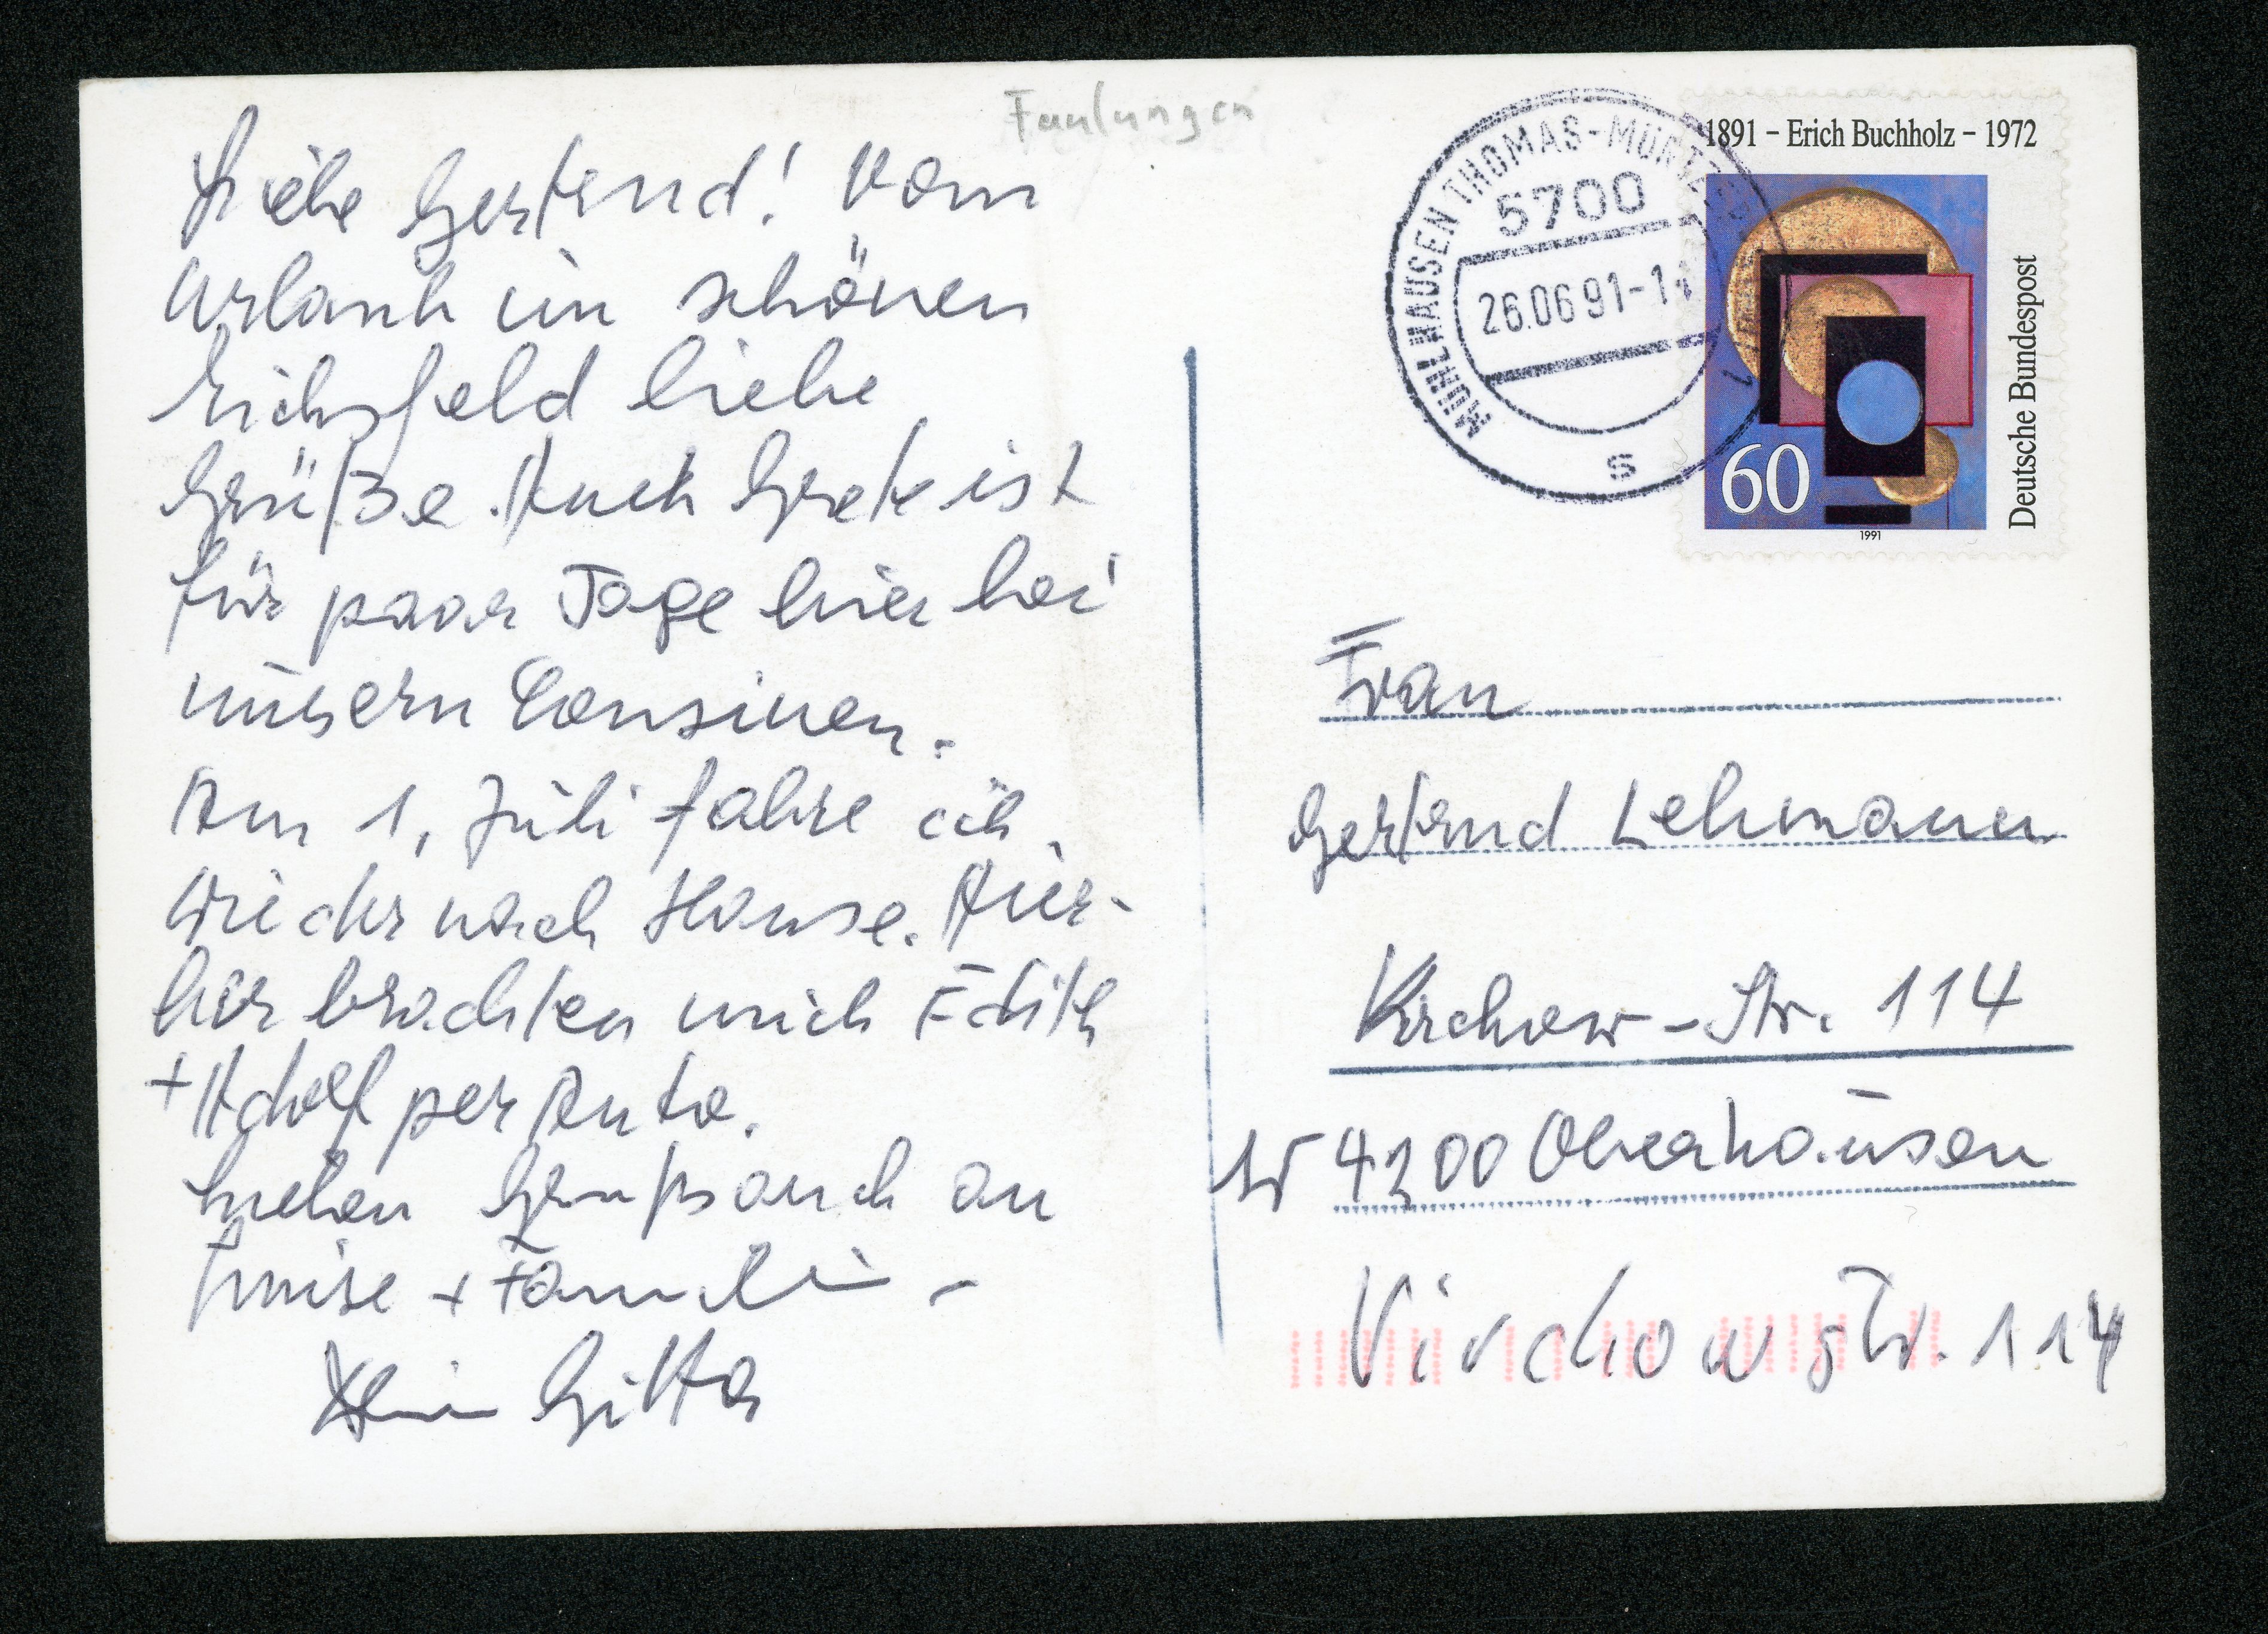 Faulungen
Liebe Gertrud! Vom
Urlaub im schönen
Eichsfeld liebe
Grüße. Auch Grete ist
für paar Tage hier bei
unsern Cousinen.
Am 1. Juli fahre ich
wieder nach Hause. Hier-
her brachten mich Edith
+ Adolf per Auto.
Lieben Gruß auch an
Luise + Familie -
Deine Gitta
MÜHLHAUSEN THOMAS-MÜNTZ
5700
26.06.91-1
s
1891 – Erich Buchholz – 1972
60
Deutsche Bundespost
1991
Frau
Gertrud Lehmann
Virchow-Str. 114
W 4200 Oberhausen
Virchowstr. 114